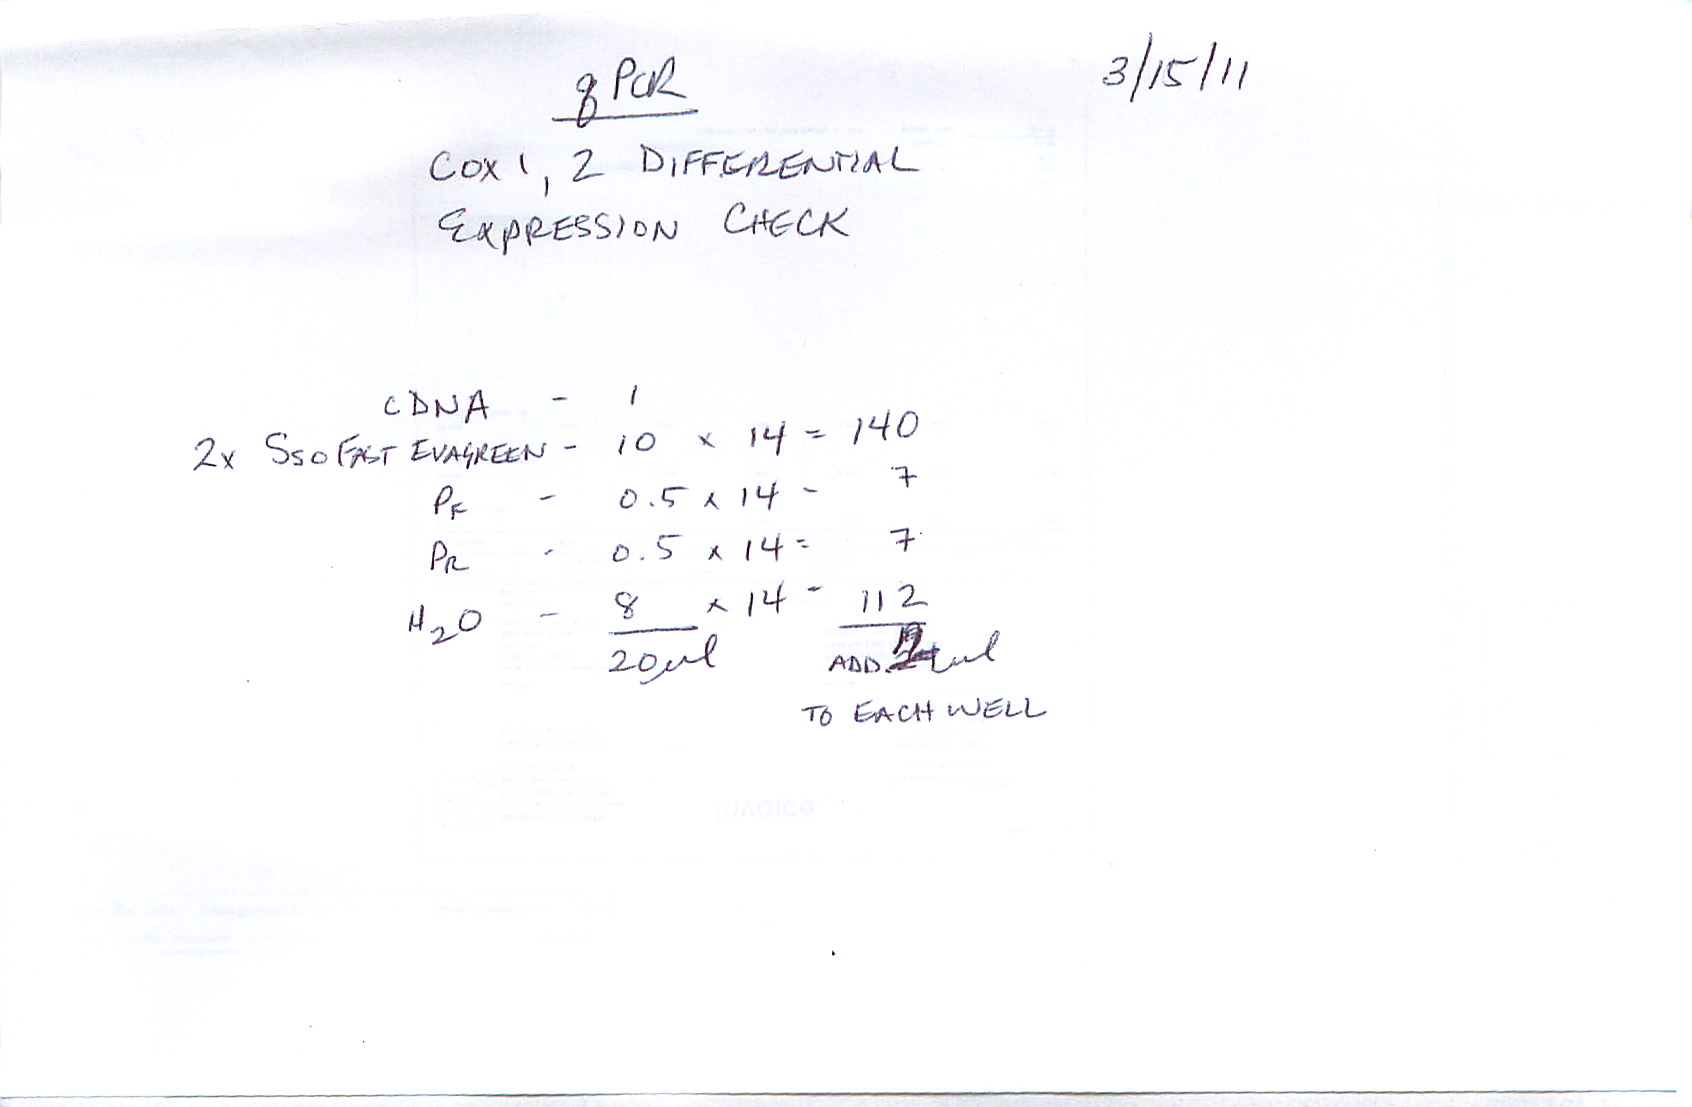 qPCR
3/15/11
COX 1, 2 DIFFERENTIAL
EXPRESSION CHECK
cDNA - 1
2x SsoFAST EVAGREEN - 10 x 14 = 140
PF - 0.5 x 14 - 7
PR - 0.5 x 14 = 7
H2O - 8 x 14 - 112
20µl ADD µl
TO EACH WELL
Invoice